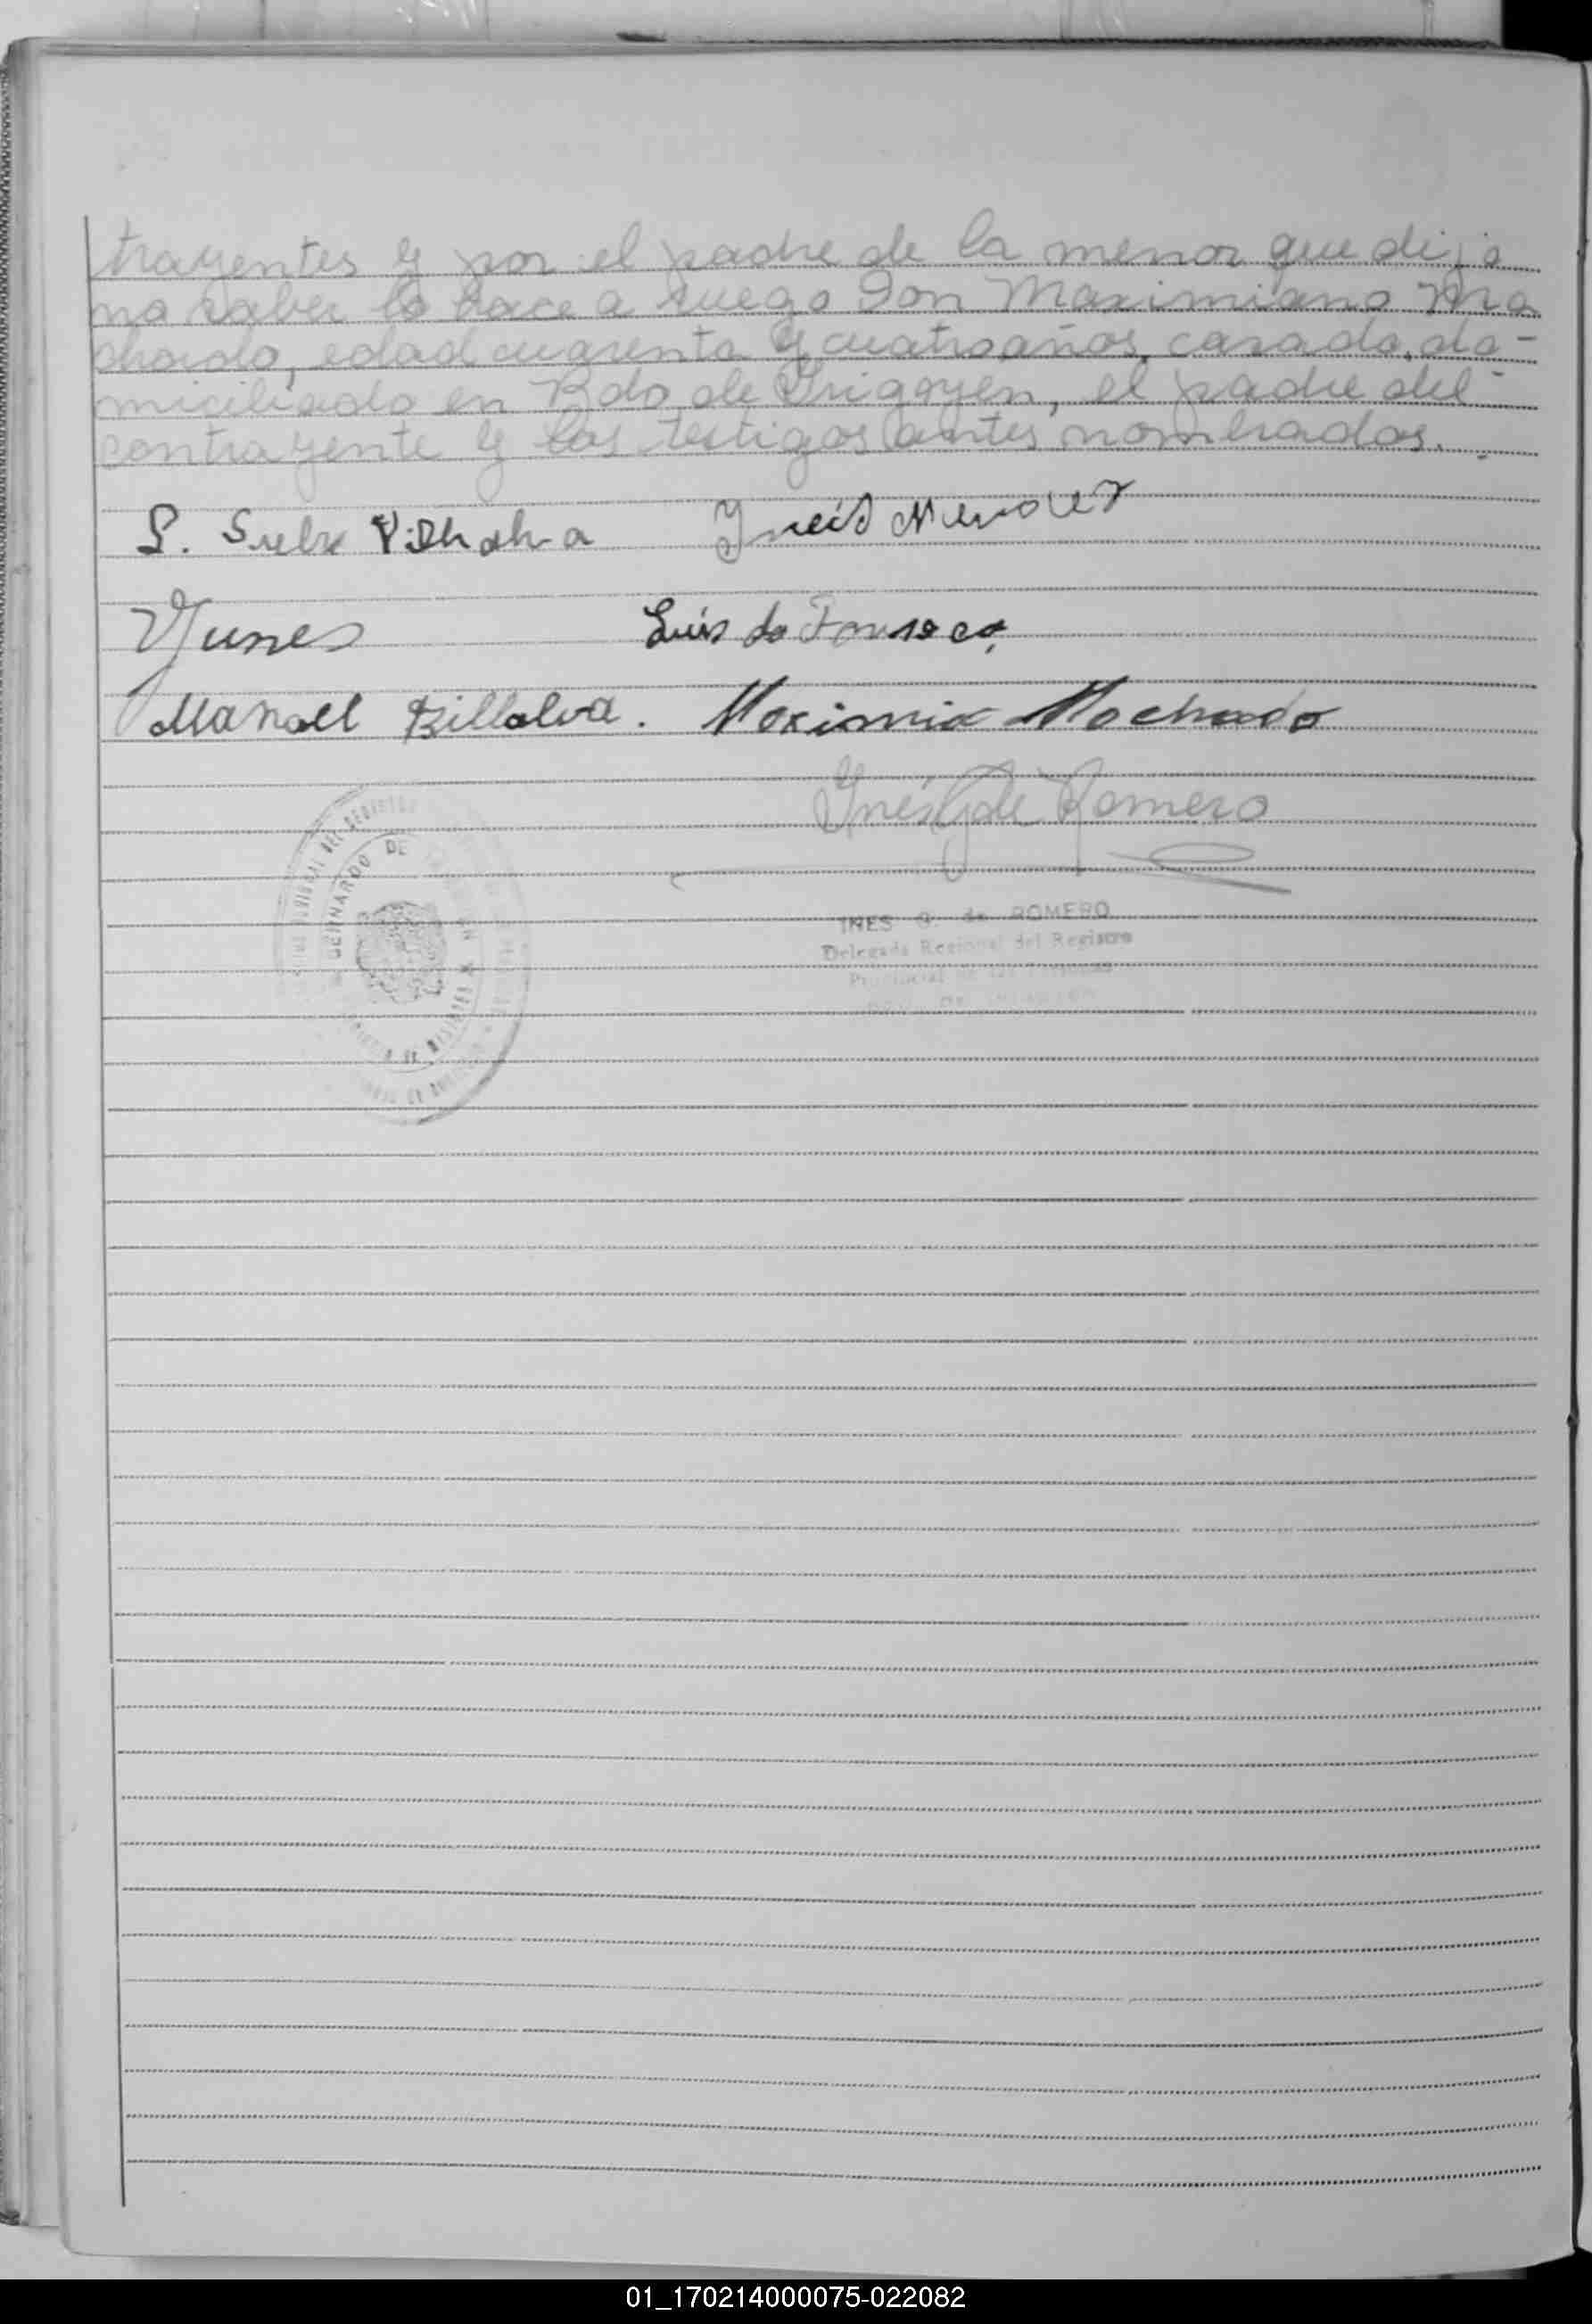 trayentes y por el padre de la menor que dijo
no saber lo hace a ruego Don Maximiano Ma
chado, edad cuarenta y cuatro años, casado, do-
miciliado en Bdo. de Irigoyen, el padre del
contrayente y los testigos antes nombrados.
S. Vilhalva
Yunes Luis da Fonseca
Manoel Billalva. Maximia Machado
Inés G. de Romero
BERNARDO DE
INES G. de ROMERO
Delegada Regional del Registro
Provincial de las Personas
01_170214000075-022082